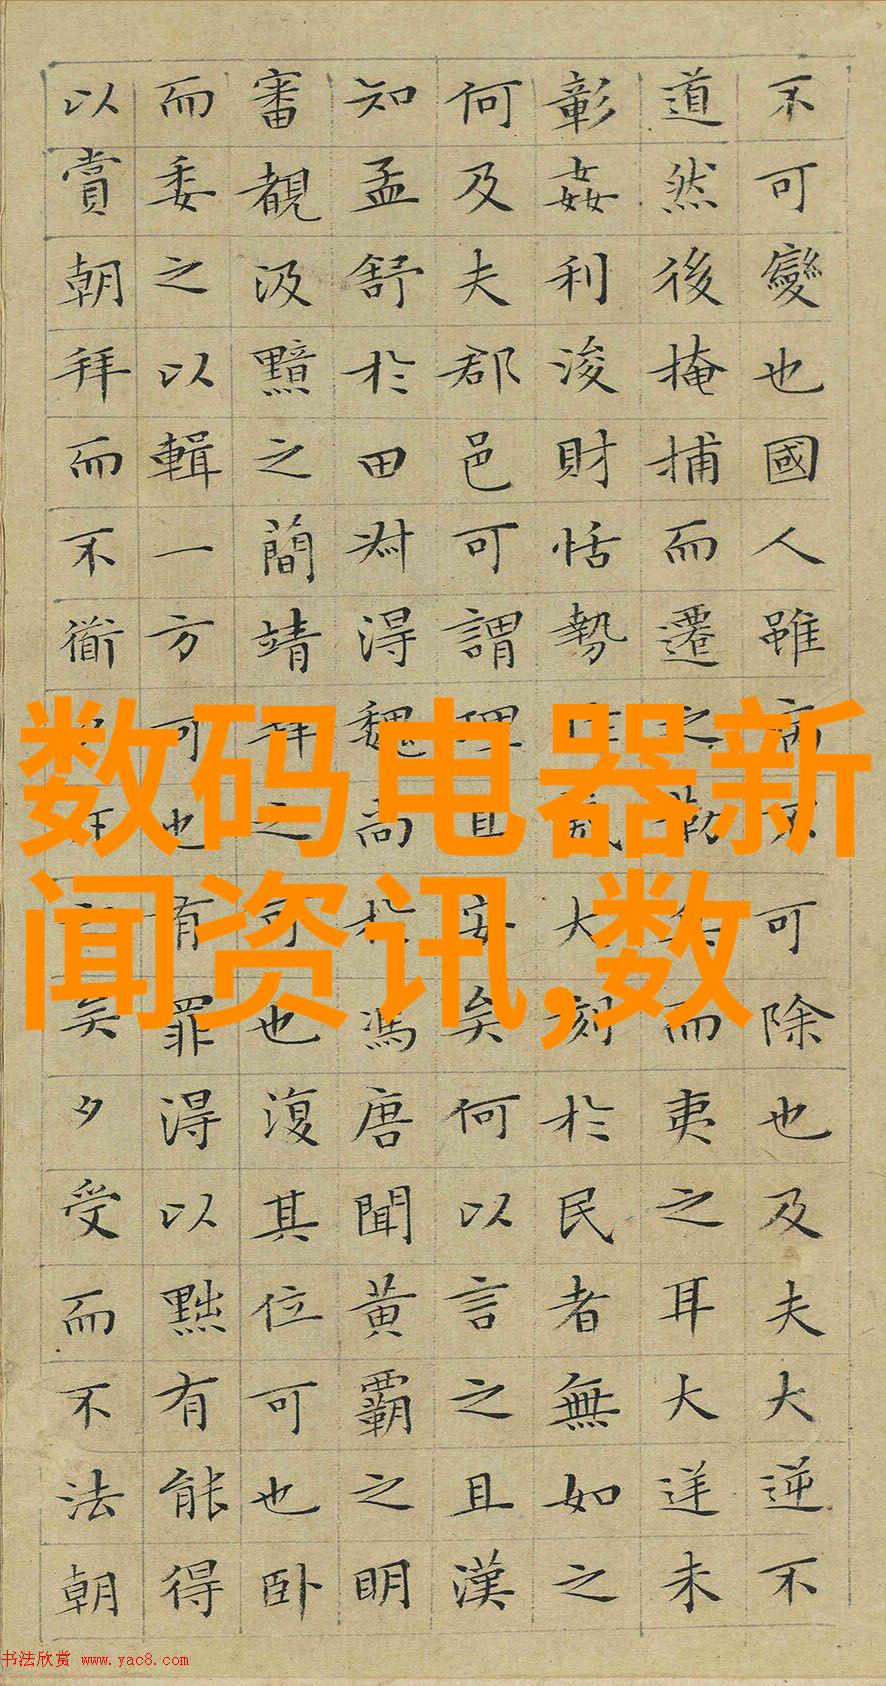 不可變也國人雖病不可除也及夫大逆不
道然後掩捕而遷之勒而夷之耳大逆未
彰姦利浚財恬勢大刻於民者無如之
何及夫郡邑可謂理且安矣何以言之且漢
知孟舒於田叔得魏尚於馮唐聞黃霸之明
審覩汲黯之簡靖拜之可也復其位可也卧
而委之以輯一方可也有罪得以黜有能得
以賞朝拜而不衜矣夕受而不法朝
数码电器新
闻资讯,数
书法欣赏 www.yac8.com